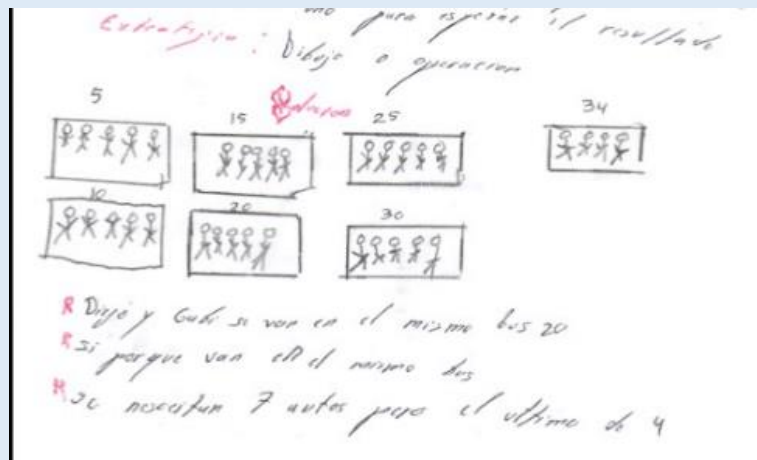 uno para esperar el resultado
Estrategia: Dibujo o operacion
5 15 25 34
10 20 30
R Diejo y Gabi si van en el mismo bus 20
R si porque van en el mismo bus
R se nesecitan 7 autos pero el ultimo de 4